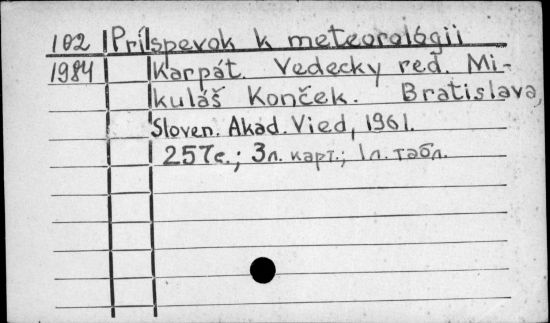 102 Príspevok k meteorológii
1984 Karpát. Vedecky red. Mi-
kuláš Konček. Bratislava,
Sloven. Akad. Vied, 1961.
257с.; 3л. карт.; 1л. табл.